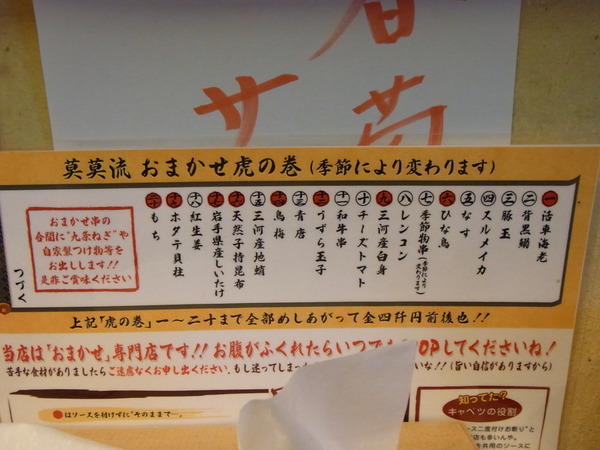 莫莫流 おまかせ虎の巻(季節により変わります)
一 活車海老
二 背黒鰯
三 豚玉
四 スルメイカ
五 なす
六 ひな鳥
七 季節物串(季節により変わります)
八 レンコン
九 三河産白身
十 チーズトマト
十一 和牛串
十二 うずら玉子
十三 青唐
十四 鳥梅
十五 三河産地蛸
十六 天然子持昆布
十七 岩手県産しいたけ
十八 紅生姜
十九 ホタテ貝柱
二十 もち
おまかせ串の
合間に"九条ねぎ"や
自家製つけ物等を
お出しします!!
是非ご賞味ください
つづく
上記「虎の巻」一〜二十まで全部めしあがって金四阡円前後也!!
当店は「おまかせ」専門店です!!お腹がふくれたらいつでも
OPしてくださいね!
苦手な食材がありましたらご遠慮なくお申し出ください。もし迷ってしまっ
いな!!(旨い自信がありますから)
●はソースを付けずに"そのままで…。
知ってた?
キャベツの役割
ース二度付けお断り"と
店も多いんや。
を共用のソースに